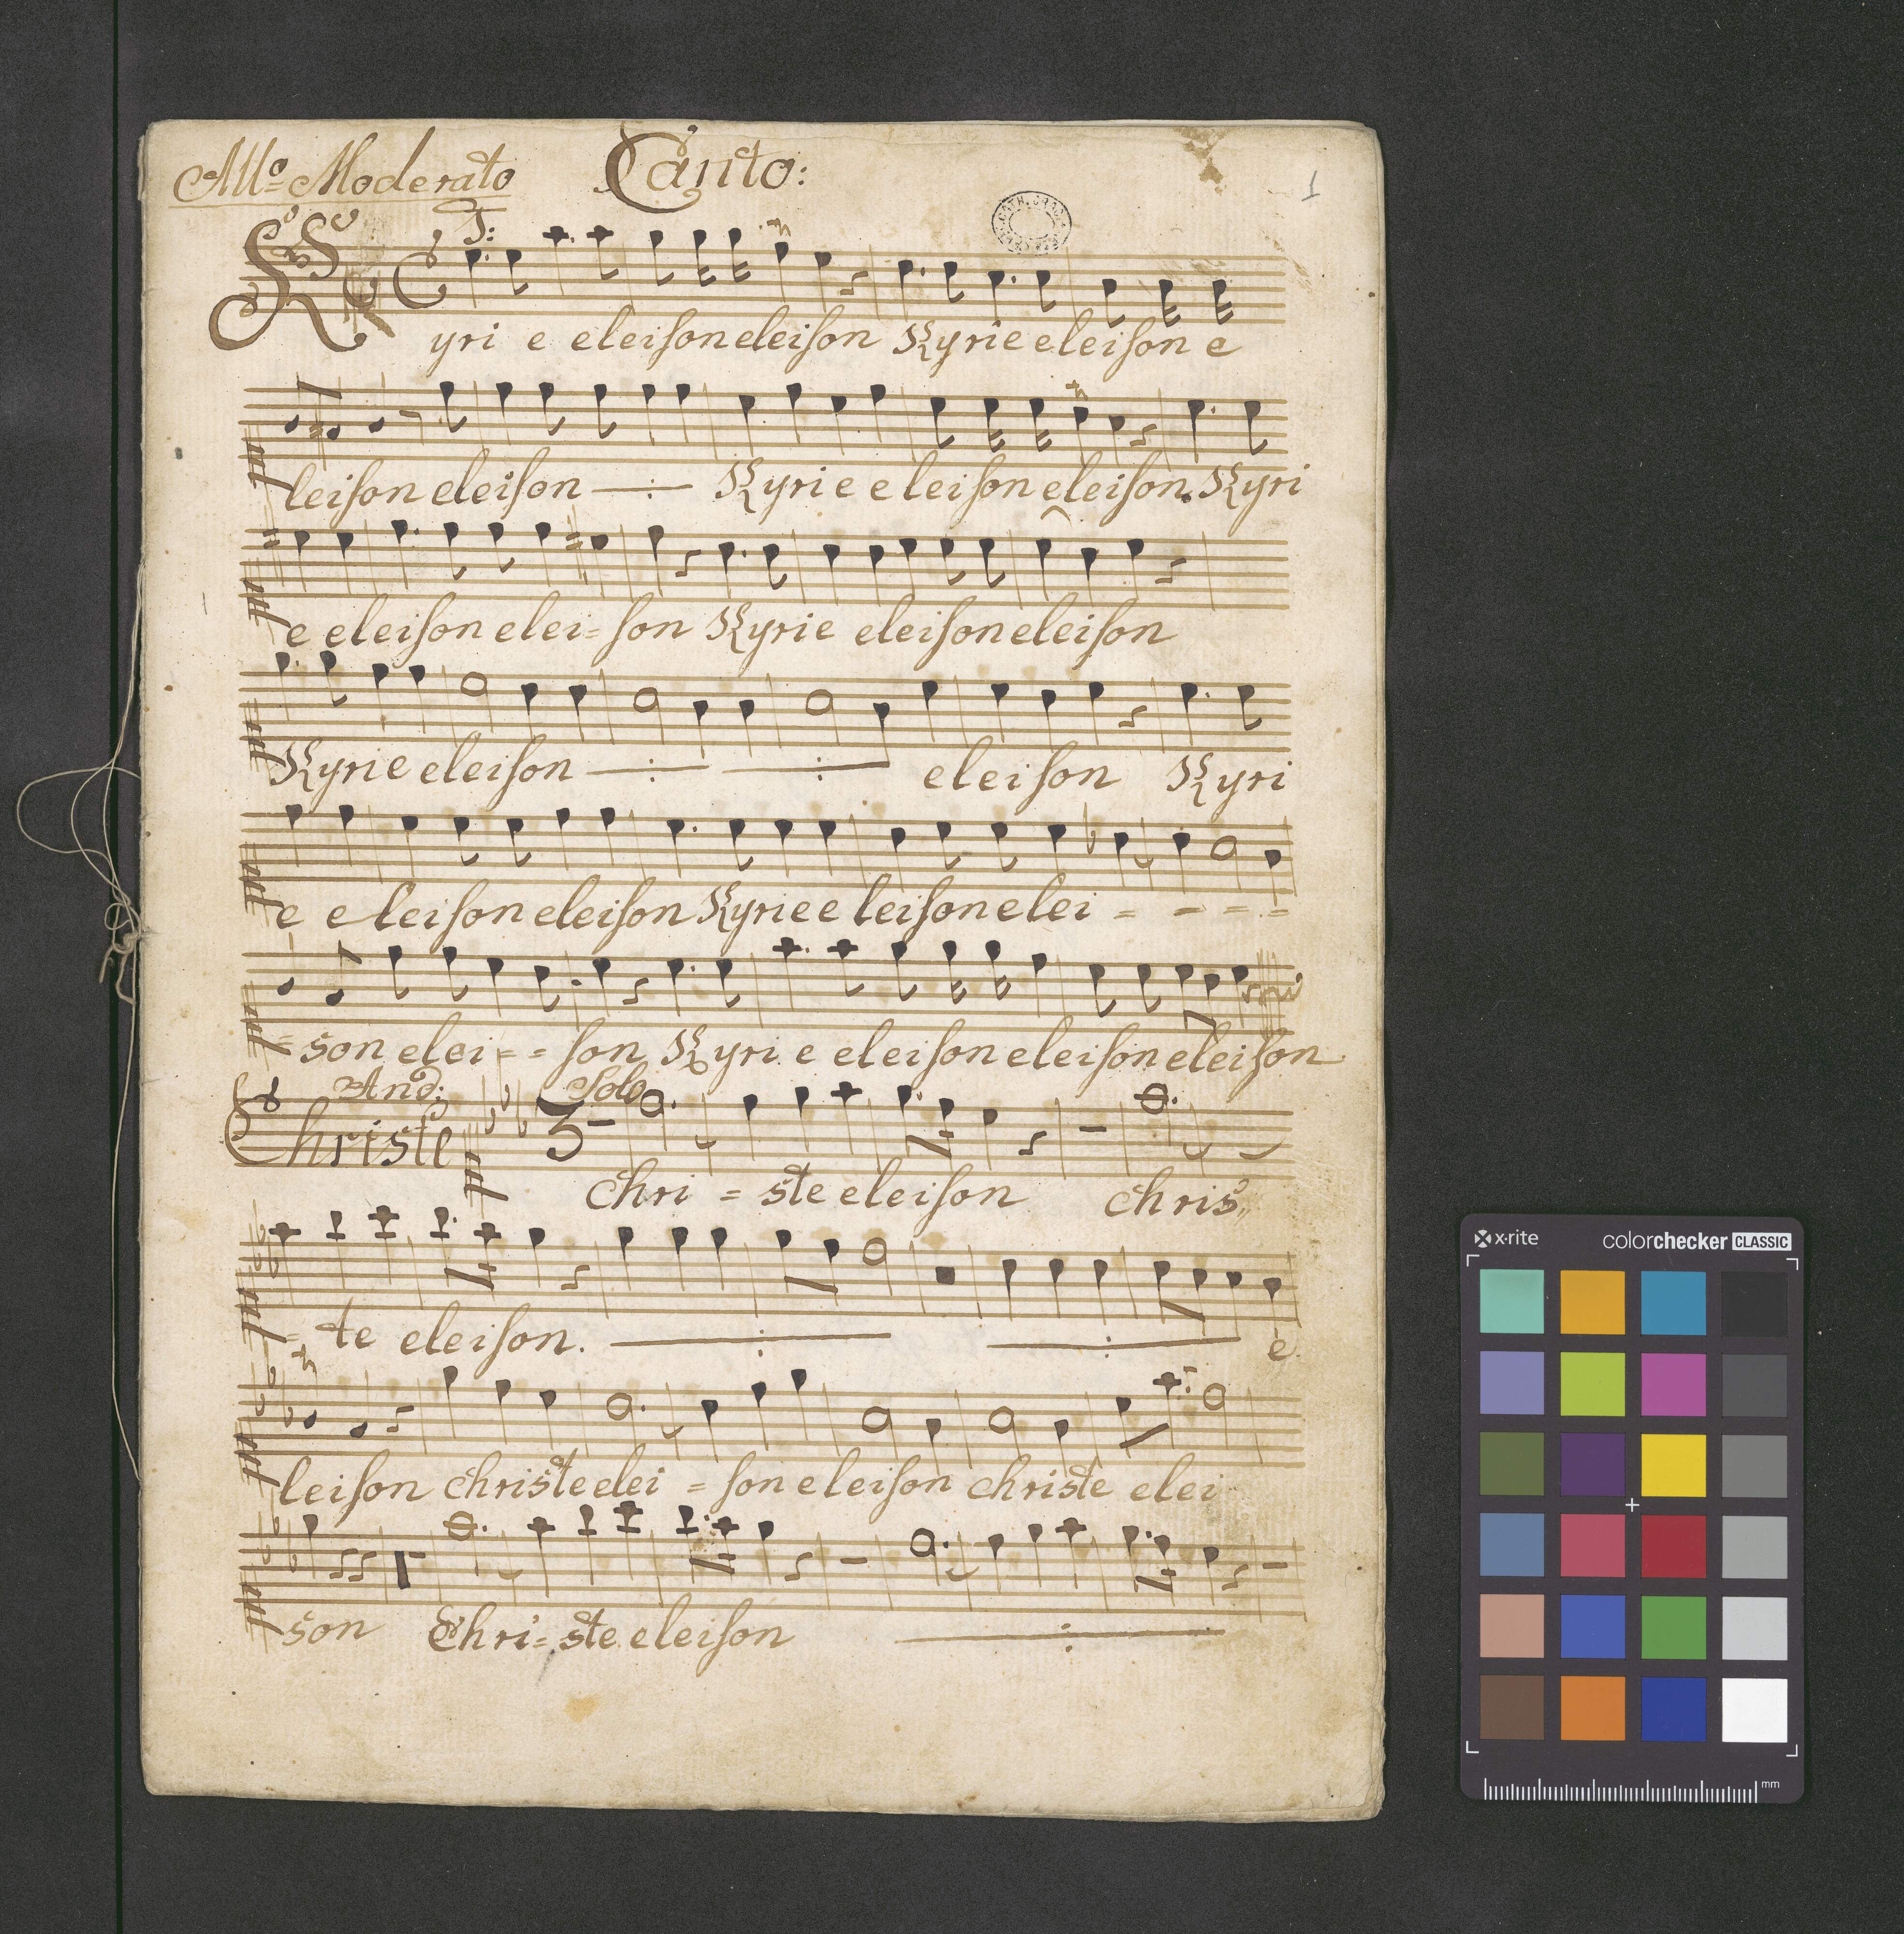 Allo Moderato Canto: 1
T:
Kyri e eleiſon eleiſon Kyrie eleiſon e
leiſon eleiſon —:— Kyrie eleiſon eleiſon. Kyri
e eleiſon elei= ſon Kyrie eleiſon eleiſon
Kyrie eleiſon —:— —:— eleiſon Kyri
e eleiſon eleiſon Kyrie eleiſon elei = = = =
= son elei = = ſon Kyri e eleiſon eleiſon eleiſon
And: Solo
Christe 3
Chri = ste eleiſon chris
= te eleiſon. —:— —:— e
leiſon christe elei = ſon eleiſon christe elei
son Chri= ste eleiſon —:—
x·rite colorchecker CLASSIC
mm